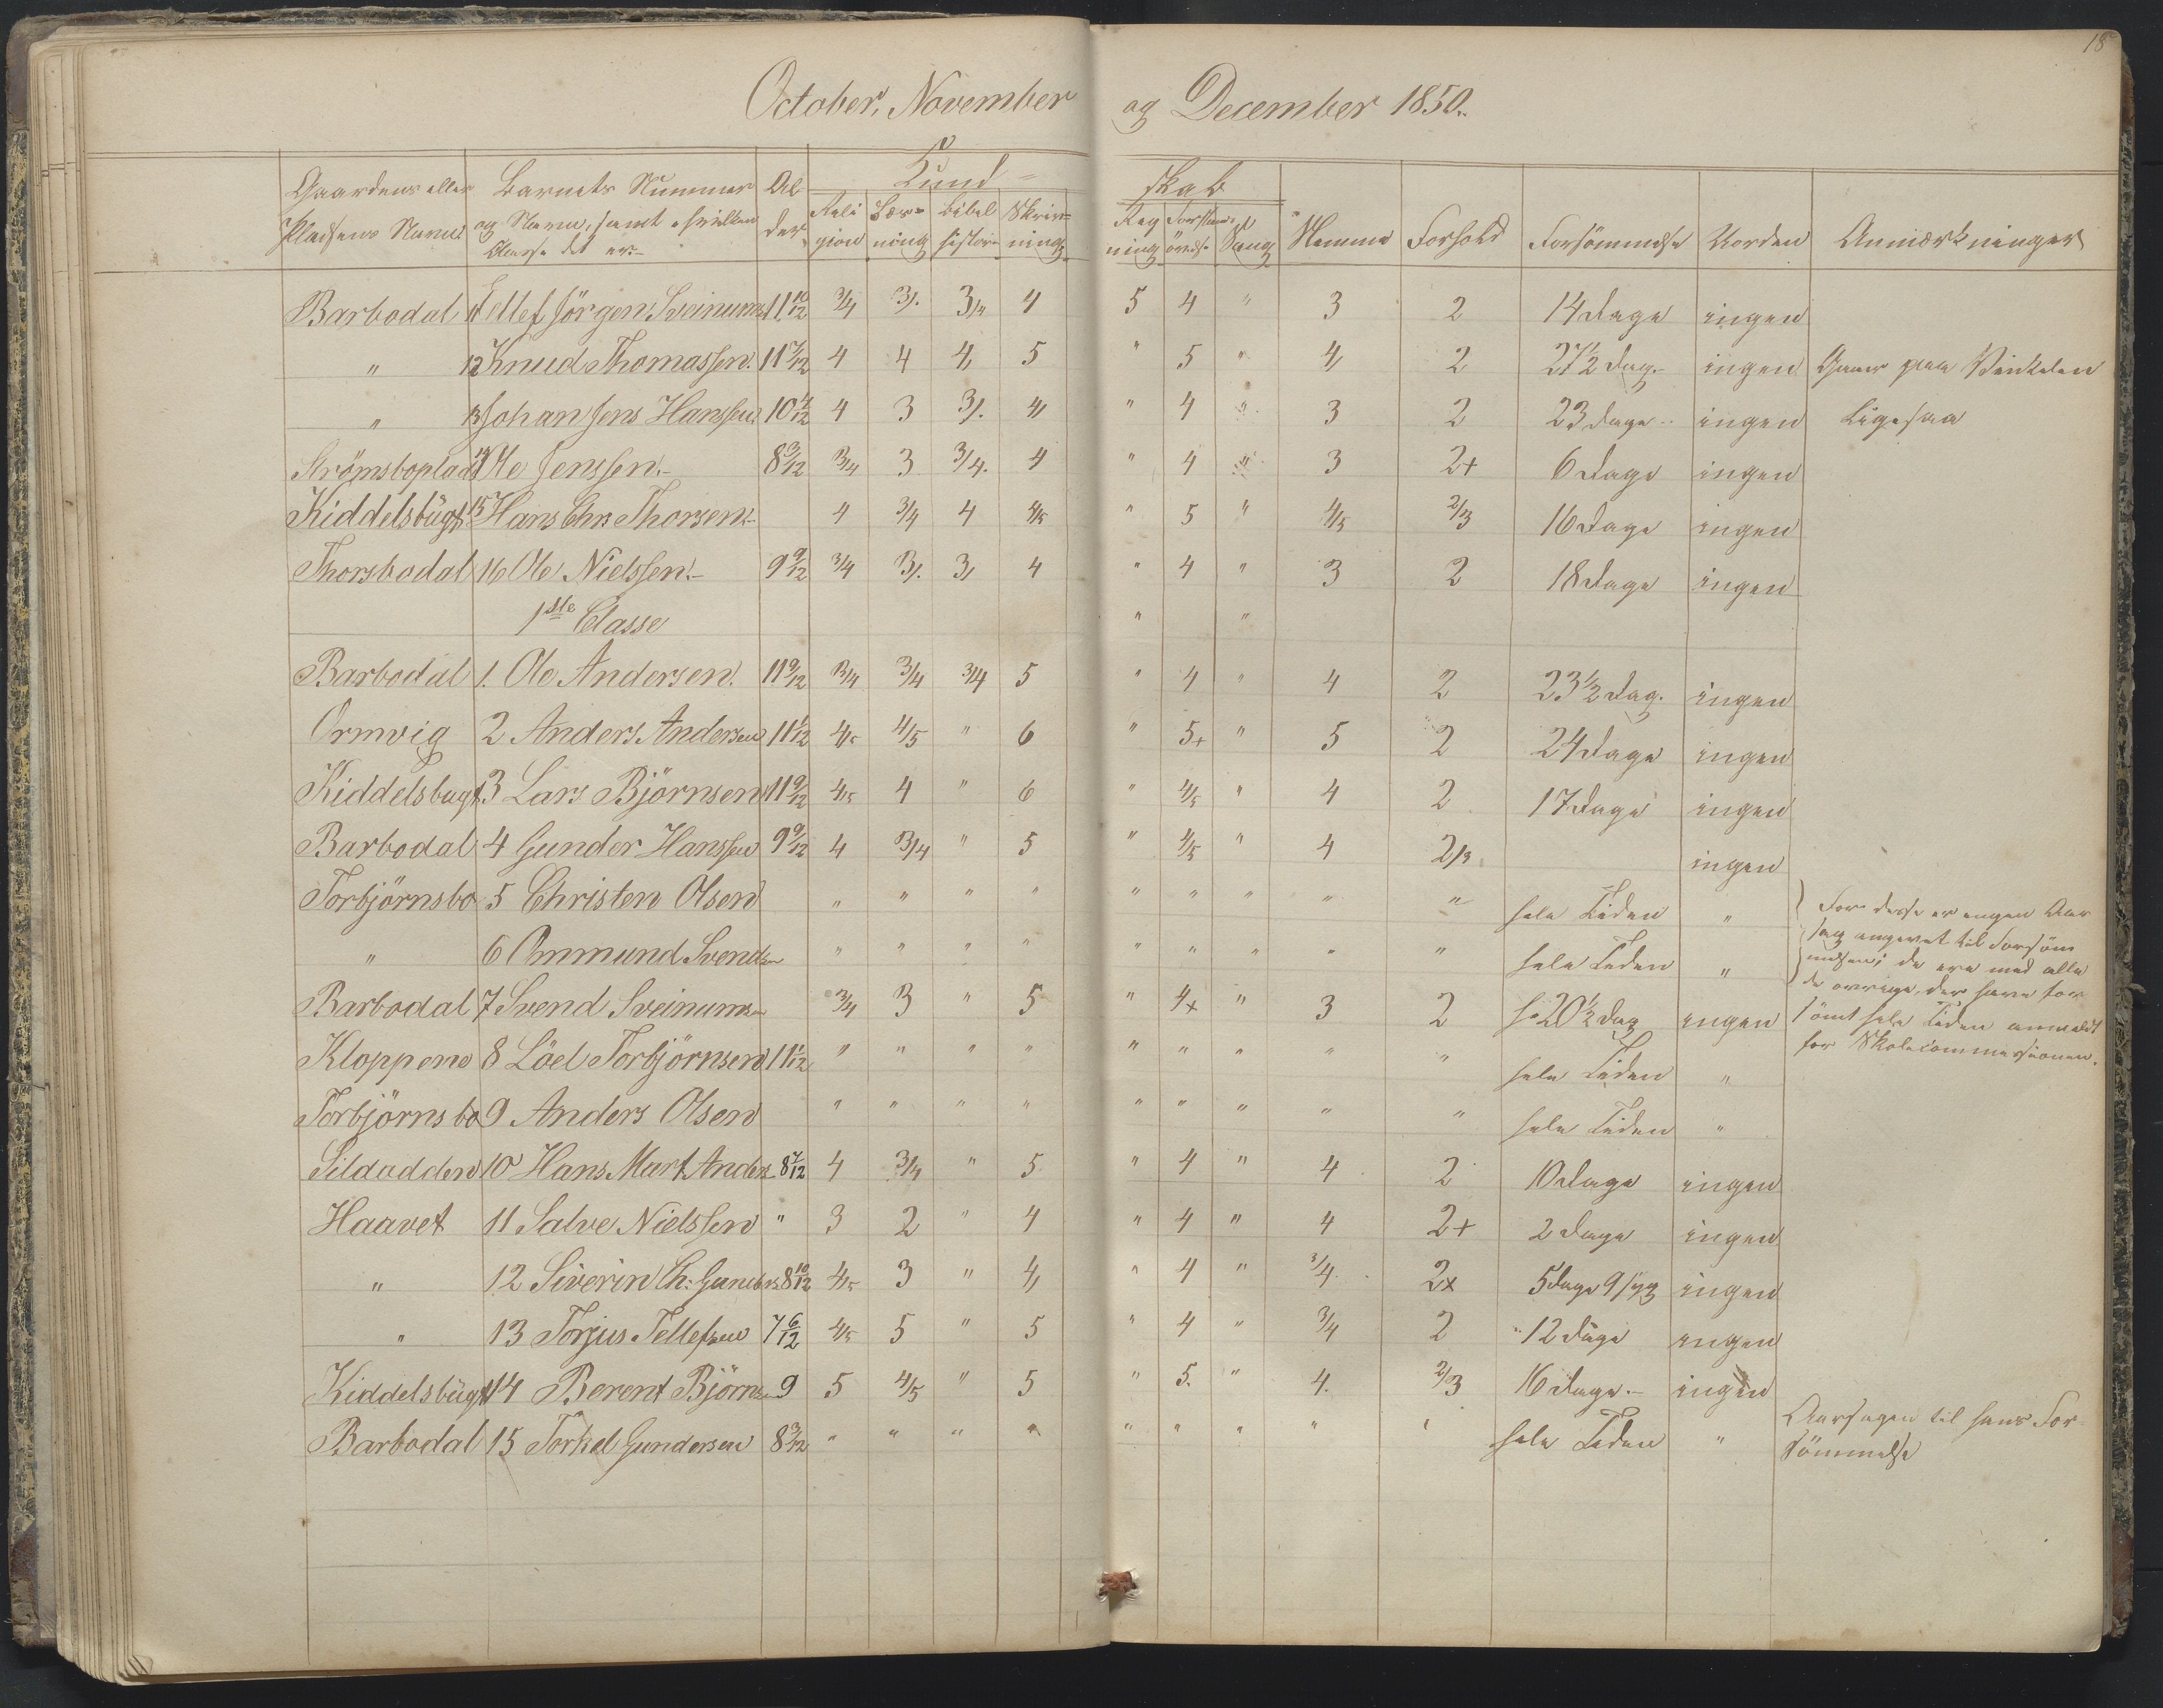 18
October, November og December 1850.
Gaardens eller Pladsens Navn
Barnets Nummer og Navn, samt i hvilken Classe det er.
Alder
Kundskab
Religion
Læsning
Bibelhistorie
Skrivning
Regning
Forstandsøvelse
Sang
Nemme
Forhold
Forsömmelse
Uorden
Anmærkninger
Barbodal 11 Tellef Jörgen Sveinums 11 10/12 3/4 3/. 3/4 4 5 4 " 3 2 14 Dage ingen
" 12 Knud Thomassen. 11 7/12 4 4 4 5 " 5 " 4 2 27 1/2 Dag. ingen Gaaer paa Vinkelen
" 13 Johan Jens Hanssen 10 4/12 4 3 3/. 4 " 4 " 3 2 23 Dage ingen Ligesaa
Strömsboplad 14 Ole Jenssen. 8 3/12 3/4 3 3/4. 4 " 4 " 3 2+ 6 Dage ingen
Kiddelsbügt 15 Hans Chr. Thorsen 4 3/4 4 4/5 " 5 " 4/5 2/3 16 Dage ingen
Thorsbodal 16 Ole Nielssen. 9 9/12 3/4 3/. 3 4 " 4 " 3 2 18 Dage ingen
1ste Classe " "
Barbodal 1. Ole Andersen. 11 9/12 3/4 3/4 3/4 5 " 4 " 4 2 23 1/2 Dag. ingen
Ormvig 2 Anders Andersen 11 1/12 4/5 4/5 " 6 " 5+ " 5 2 24 Dage ingen
Kiddelsbugt 3 Lars Björnsen 11 9/12 4/5 4 " 6 " 4/5 " 4 2 17 Dage ingen
Barbodal 4 Gunder Hanssen 9 9/12 4 3/4 " 5 " 4/5 " 4 2/3 ingen
Torbjörnsbo 5 Christen Olsen " " " " " " " " " hele Tiden "
" 6 Ommund Svendsen " " " " " " " " " hele Tiden "
For disse er ingen Aar
sag angivet til Forsöm
melsen; de ere med alle
de övrige, der have for
sömt hele Tiden anmeldt
for Skolecommissionen.
Barbodal 7 Svend Sveinumsen 3/4 3 " 5 " 4+ " 3 2 20 1/2 Dag ingen
Kloppene 8 Löel Torbjörnsen 11 1/12 " " " " " " " " " hele Tiden "
Torbjörnsbo 9 Anders Olsen " " " " " " " " " hele Tiden "
Sildodden 10 Hans Mart. Anders 8 7/12 4 3/4 " 5 " 4 " 4 2 10 Dage ingen
Haavet 11 Salve Nielssen " 3 2 " 4 " 4 " 4 2+ 2 Dage ingen
" 12 Siverin Ch: Gunders 8 10/12 4/5 3 " 4 " 4 " 3/4 2+ 5 Dage 9 syg ingen
" 13 Torjus Tellefsen 7 6/12 4/5 5 " 5 " 4 " 3/4 2 12 Dage ingen
Kiddelsbügt 14 Berent Björnsen 9 5 4/5 " 5 " 5. " 4. 2/3 16 Dage ingen
Barbodal 15 Torkel Gundersen 8 3/12 " " " " " " " " " hele Tiden "
Aarsagen til hans For-
sömmelse